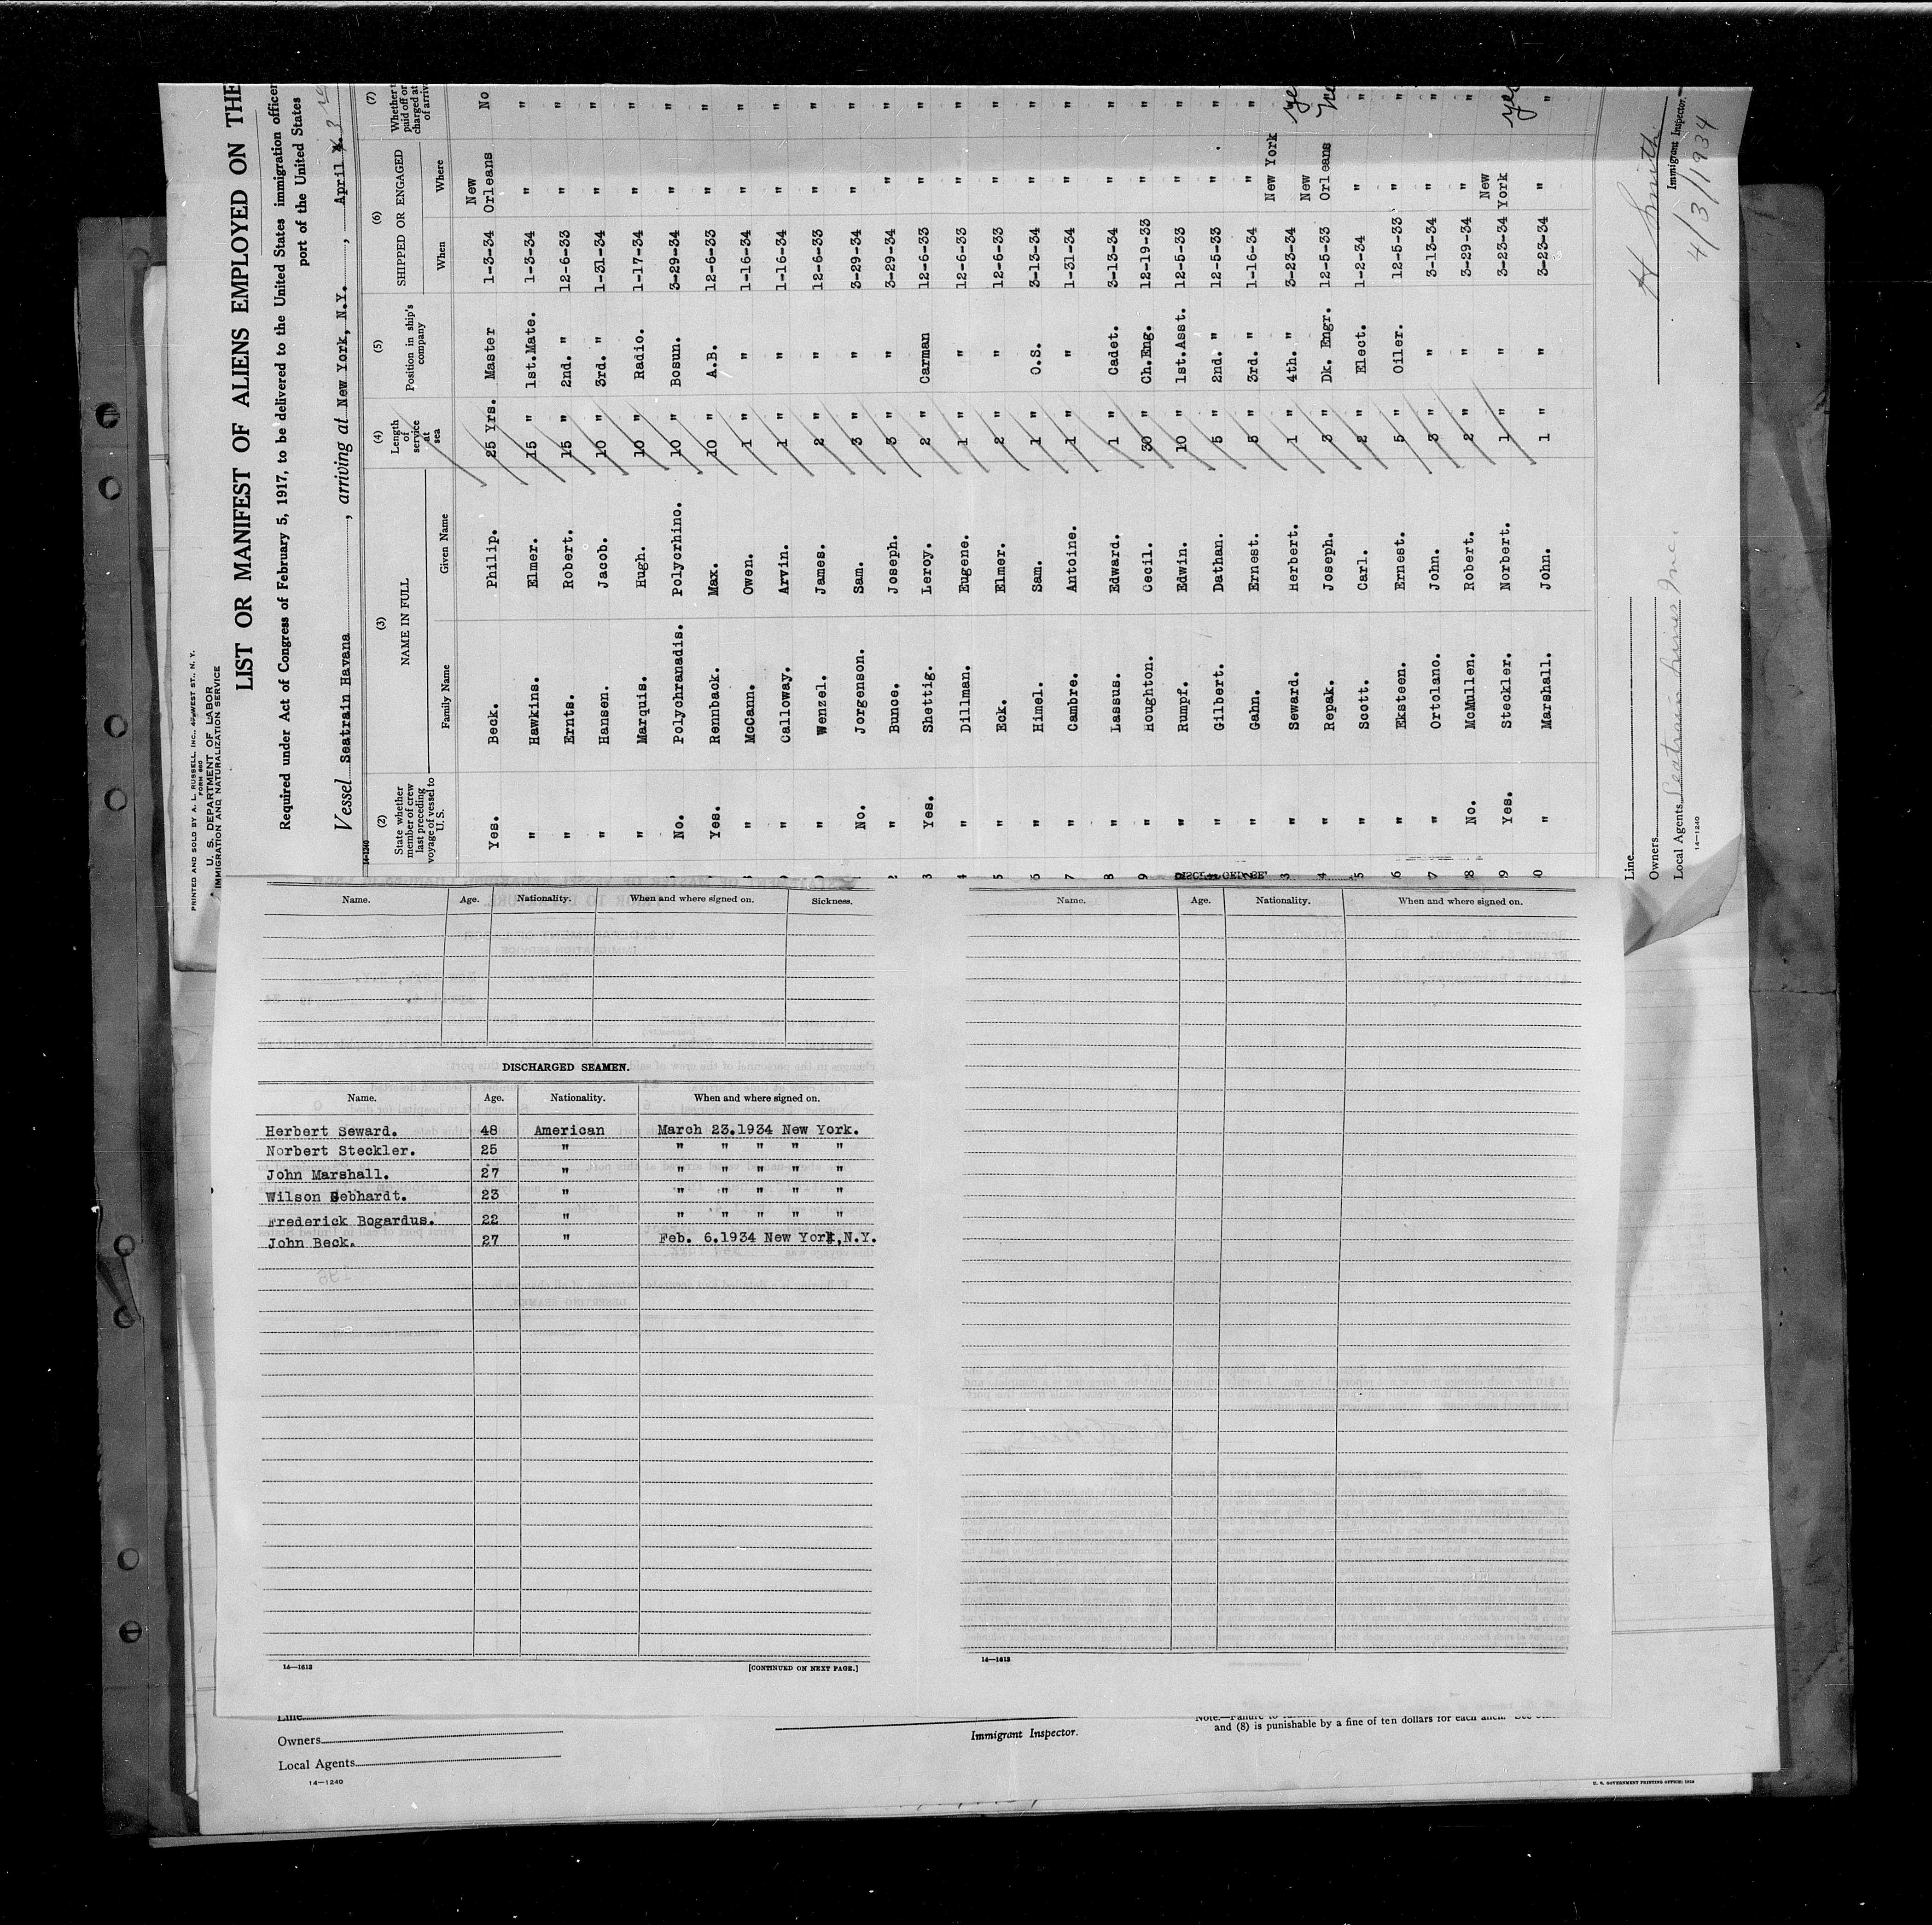 PRINTED AND SOLD BY A. L. RUSSELL, INC., WEST ST., N. Y.
FORM 680
U. S. DEPARTMENT OF LABOR
IMMIGRATION AND NATURALIZATION SERVICE
LIST OR MANIFEST OF ALIENS EMPLOYED ON THE
Required under Act of Congress of February 5, 1917, to be delivered to the United States immigration officer
port of the United States
Vessel Seatrain Havana, arriving at New York, N.Y., April 3
14-1240
(2) (3) (4) (5) (6) (7)
State whether member of crew last preceding voyage of vessel to U.S. NAME IN FULL Length of service at sea Position in ship's company SHIPPED OR ENGAGED
Family Name Given Name When Where
Yes. Beck. Philip. 25 Yrs. Master 1-3-34 New Orleans No
" Hawkins. Elmer. 15 " 1st.Mate. 1-3-34 " "
" Ernts. Robert. 15 " 2nd. " 12-6-33 " "
" Hansen. Jacob. 10 " 3rd. " 1-31-34 " "
" Marquis. Hugh. 10 " Radio. 1-17-34 " "
No. Polychranadis. Polycrhino. 10 " Bosun. 3-29-34 " "
Yes. Rennback. Max. 10 " A.B. 12-6-33 " "
" McCann. Owen. 1 " " 1-16-34 " "
" Calloway. Arvin. 1 " " 1-16-34 " "
" Wenzel. James. 2 " " 12-6-33 " "
No. Jorgenson. Sam. 3 " " 3-29-34 " "
" Bunce. Joseph. 3 " " 3-29-34 " "
Yes. Shettig. Leroy. 2 " Carman 12-6-33 " "
" Dillman. Eugene. 1 " " 12-6-33 " "
" Eck. Elmer. 2 " " 12-6-33 " "
" Himel. Sam. 1 " O.S. 3-13-34 " "
" Cambre. Antoine. 1 " " 1-31-34 " "
" Lassus. Edward. 1 " Cadet. 3-13-34 " "
" Houghton. Cecil. 30 " Ch.Eng. 12-19-33 " "
" Rumpf. Edwin. 10 " 1st.Asst. 12-5-33 " "
" Gilbert. Dathan. 5 " 2nd. " 12-5-33 " "
" Gahn. Ernest. 5 " 3rd. " 1-16-34 " "
" Seward. Herbert. 1 " 4th. " 3-23-34 New York
" Repak. Joseph. 3 " Dk. Engr. 12-5-33 New Orleans
" Scott. Carl. 2 " Elect. 1-2-34 " "
" Eksteen. Ernest. 5 " Oiler. 12-5-33 " "
" Ortolano. John. 3 " " 3-13-34 " "
No. McMullen. Robert. 2 " " 3-29-34 " "
Yes. Steckler. Norbert. 1 " " 3-23-34 New York yes
" Marshall. John. 1 " " 3-23-34 " "
Line
Owners
Local Agents Seatrain Lines Inc.
14-1240
H Smith
Immigrant Inspector.
4/3/1934
Name. Age. Nationality. When and where signed on. Sickness.
DISCHARGED SEAMEN.
Name. Age. Nationality. When and where signed on.
Herbert Seward. 48 American March 23.1934 New York.
Norbert Steckler. 25 " " " " " "
John Marshall. 27 " " " " " "
Wilson Gebhardt. 23 " " " " " "
Frederick Bogardus. 22 " " " " " "
John Beck. 27 " Feb. 6.1934 New York,N.Y.
14—1613
[CONTINUED ON NEXT PAGE.]
Name. Age. Nationality. When and where signed on.
14—1613
Line
Owners
Local Agents
14—1240
Immigrant Inspector.
and (8) is punishable by a fine of ten dollars for each alien.
U. S. GOVERNMENT PRINTING OFFICE: